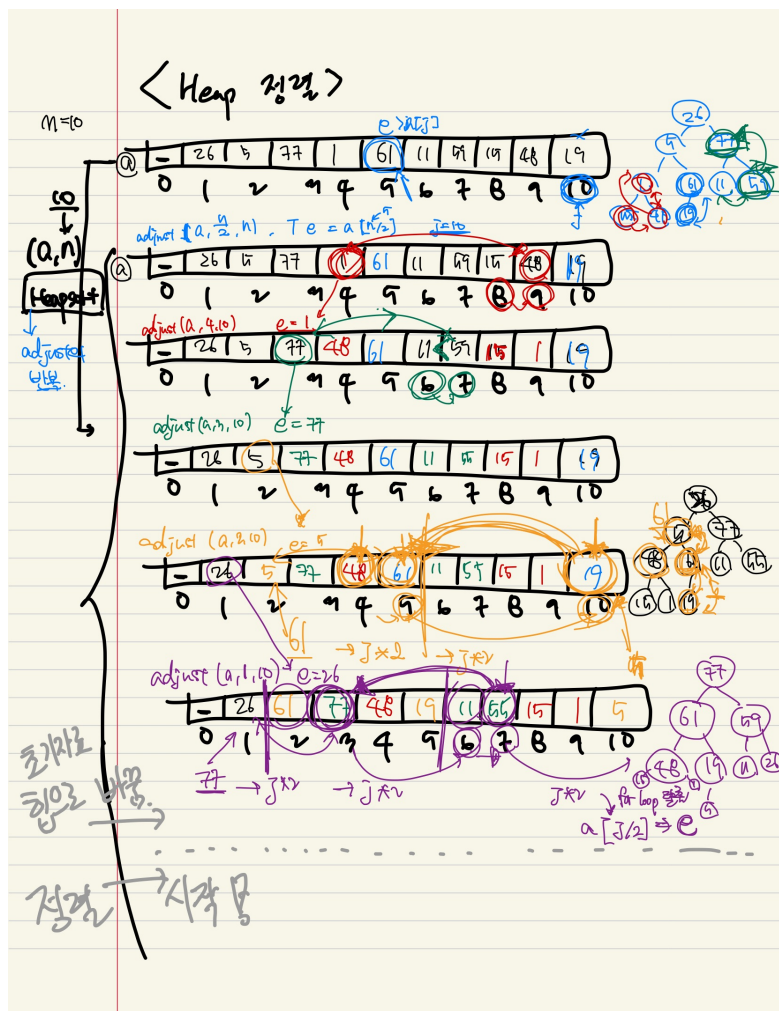 < Heap 정렬 >
n=10
e > a[j]
ⓐ - 26 5 77 1 61 11 59 15 48 19
0 1 2 3 4 5 6 7 8 9 10
j
10
(a, n)
Heapsort
adjust의 반복
adjust (a, n/2, n). e = a[n/2] j=10
ⓐ - 26 5 77 1 61 11 59 15 48 19
0 1 2 3 4 5 6 7 8 9 10
adjust(a, 4, 10) e=1
- 26 5 77 48 61 11 59 15 1 19
0 1 2 3 4 5 6 7 8 9 10
adjust(a, 3, 10) e=77
- 26 5 77 48 61 11 55 15 1 19
0 1 2 3 4 5 6 7 8 9 10
adjust (a, 2, 10) e=5
- 26 5 77 48 61 11 55 15 1 19
0 1 2 3 4 5 6 7 8 9 10
61 → j*2 → j*2 5
adjust (a, 1, 10) e=26
- 26 61 77 48 19 11 55 15 1 5
0 1 2 3 4 5 6 7 8 9 10
77 → j*2 → j*2 j*2 for loop 탈출
a[j/2] ⇒ e
26
5 77
1 61 11 59
15 48 19
61
5 77
48 61 11 55
15 1 19
77
61 59
48 19 11 26
15 1 5
초기자료
힙으로 바꿈.
정렬 → 시작 됨